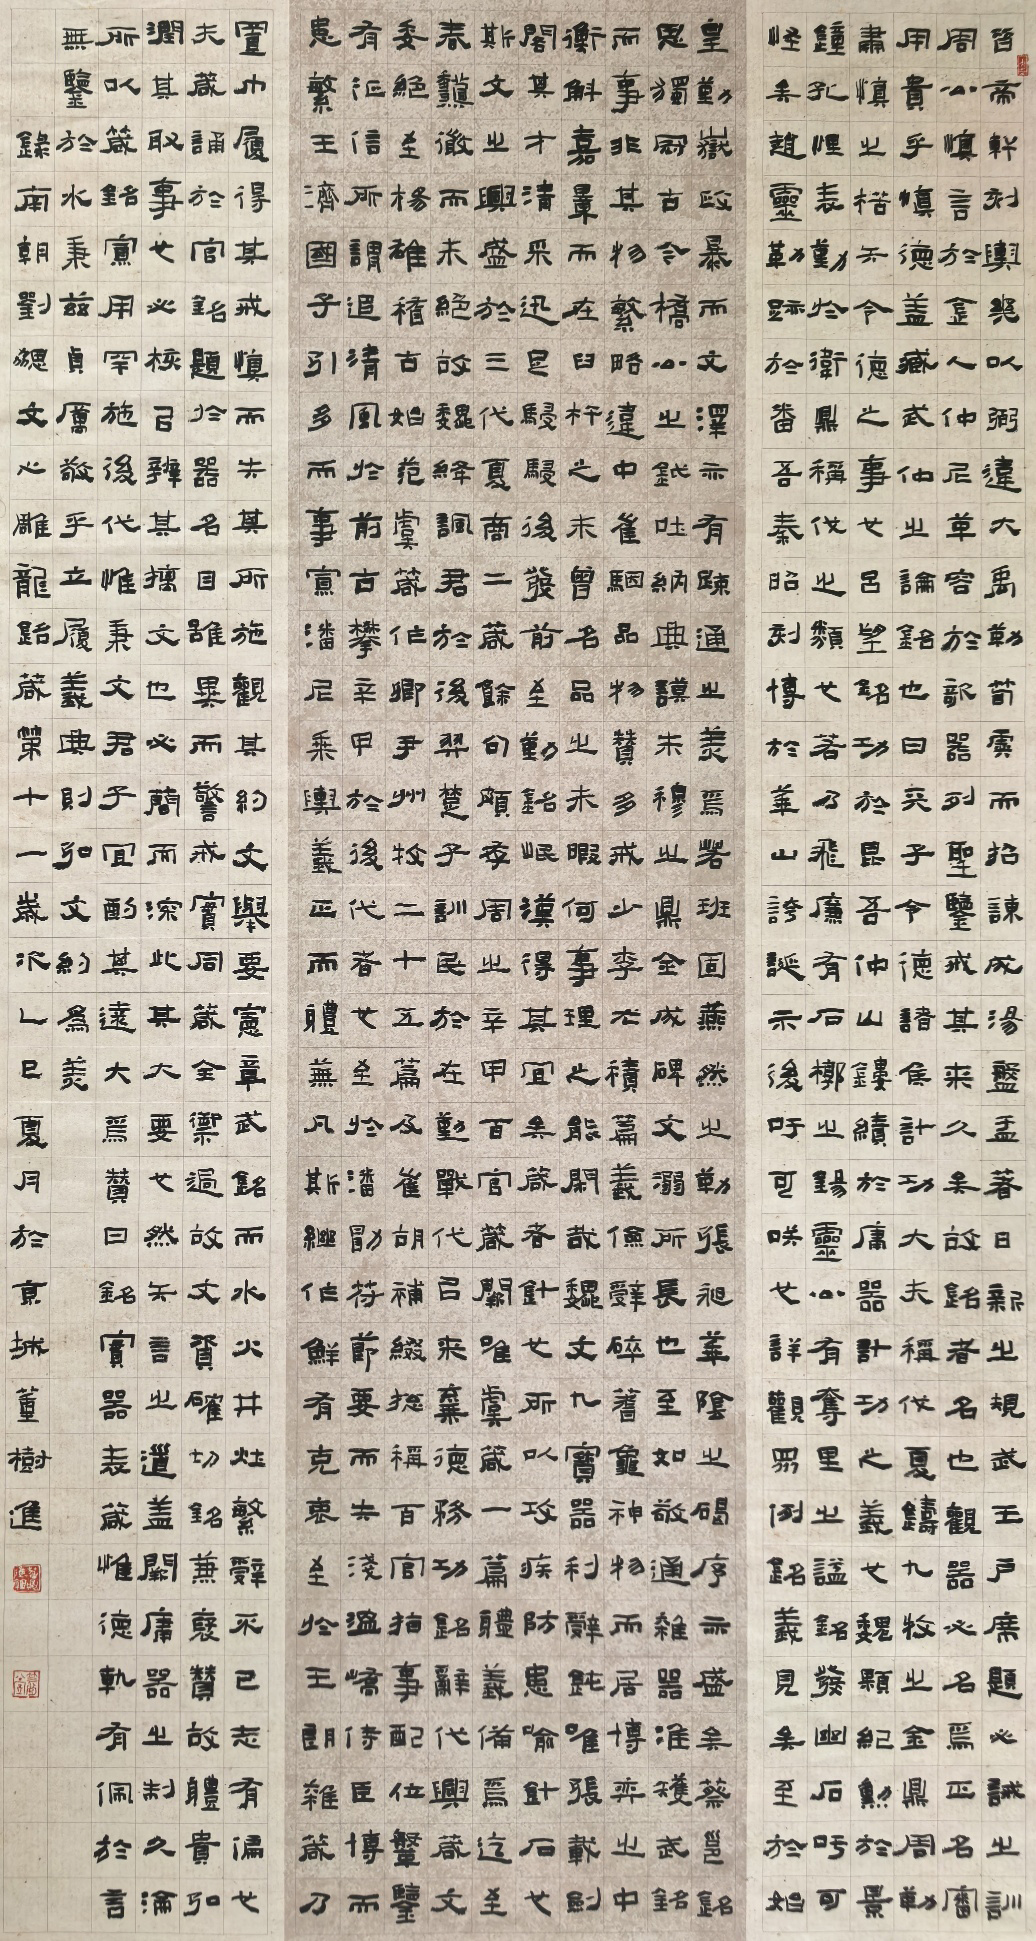 昔帝軒刻輿几以弼違大禹勒筍虡而招諫成湯盤盂著日新之規武王戶席題必誡之訓
周公慎言於金人仲尼革容於欹器列聖鑒戒其来久矣故銘者名也觀器必名焉正名審
用貴乎慎德盖臧武仲之論銘也曰天子令德諸侯計功大夫稱伐夏鑄九牧之金鼎周勒
肅慎之楛矢令德之事也吕望銘功於昆吾仲山鏤績於庸器計功之義也魏顆紀勳於景
鐘孔悝表勤於衛鼎稱伐之類也若乃飛廉有石槨之錫靈公有奪里之謚銘發幽石吁可
怪矣趙靈勒跡於番吾秦昭刻博於華山誇誕示後吁可咲也詳觀眾例銘義見矣至於始
皇勒嶽政暴而文澤亦有疎通之美焉若班固燕然之勒張昶華陰之碣序亦盛矣蔡邕銘
思獨冠古今橋公之鉞吐納典謨朱穆之鼎全成碑文溺所長也至如敬通雜器準矱武銘
而事非其物繁略違中崔駰品物贊多戒少李尤積篇義儉辭碎蓍龜神物而居博弈之中
衡斛嘉量而在臼杵之末曾名品之未暇何事理之能閑哉魏文九寶器利辭鈍唯張載劍
閣其才清采迅足駸駸後發前至勒銘岷漢得其宜矣箴者針也所以攻疾防患喻針石也
斯文之興盛於三代夏商二箴餘句頗存周之辛甲百官箴闕唯虞箴一篇體義備焉迄至
春秋微而未絕故魏絳諷君於後羿楚子訓民於在勤戰代已来棄德務功銘辭代興箴文
委絕至楊雄稽古始范虞箴作卿尹州牧二十五篇及崔胡補綴總稱百官指事配位鞶鑒
有征信所謂追清風於前古攀辛甲於後代者也至於潘勗符節要而失淺溫嶠侍臣博而
患繁王濟國子引多而事寡潘尼乘輿義正而體蕪凡斯繼作鮮有克衷至於王朗雜箴乃
置巾履得其戒慎而失其所施觀其約文舉要憲章武銘而水火井灶繁辭不已志有偏也
夫箴誦於官銘題於器名目雖異而警戒實同箴全禦過故文資確切銘兼褒贊故體貴弘
潤其取事也必核以辨其摛文也必簡而深此其大要也然矢言之道盖闕庸器之制久淪
所以箴銘寡用罕施後代惟秉文君子宜酌其遠大焉贊曰銘實器表箴惟德軌有佩於言
無鑒於水秉茲貞厲敬乎立履義典則弘文約為美
錄南朝劉勰文心雕龍銘箴第十一歲次乙巳夏月於京城董樹進